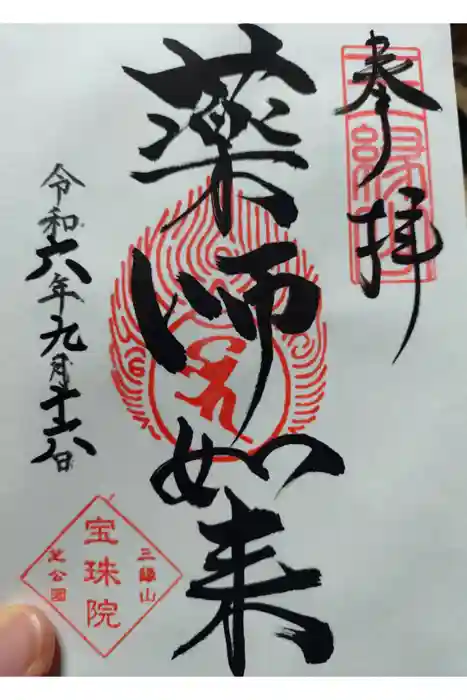 奉拝
三縁
薬師如来
令和六年九月十六日
三縁山
宝珠院
芝公園